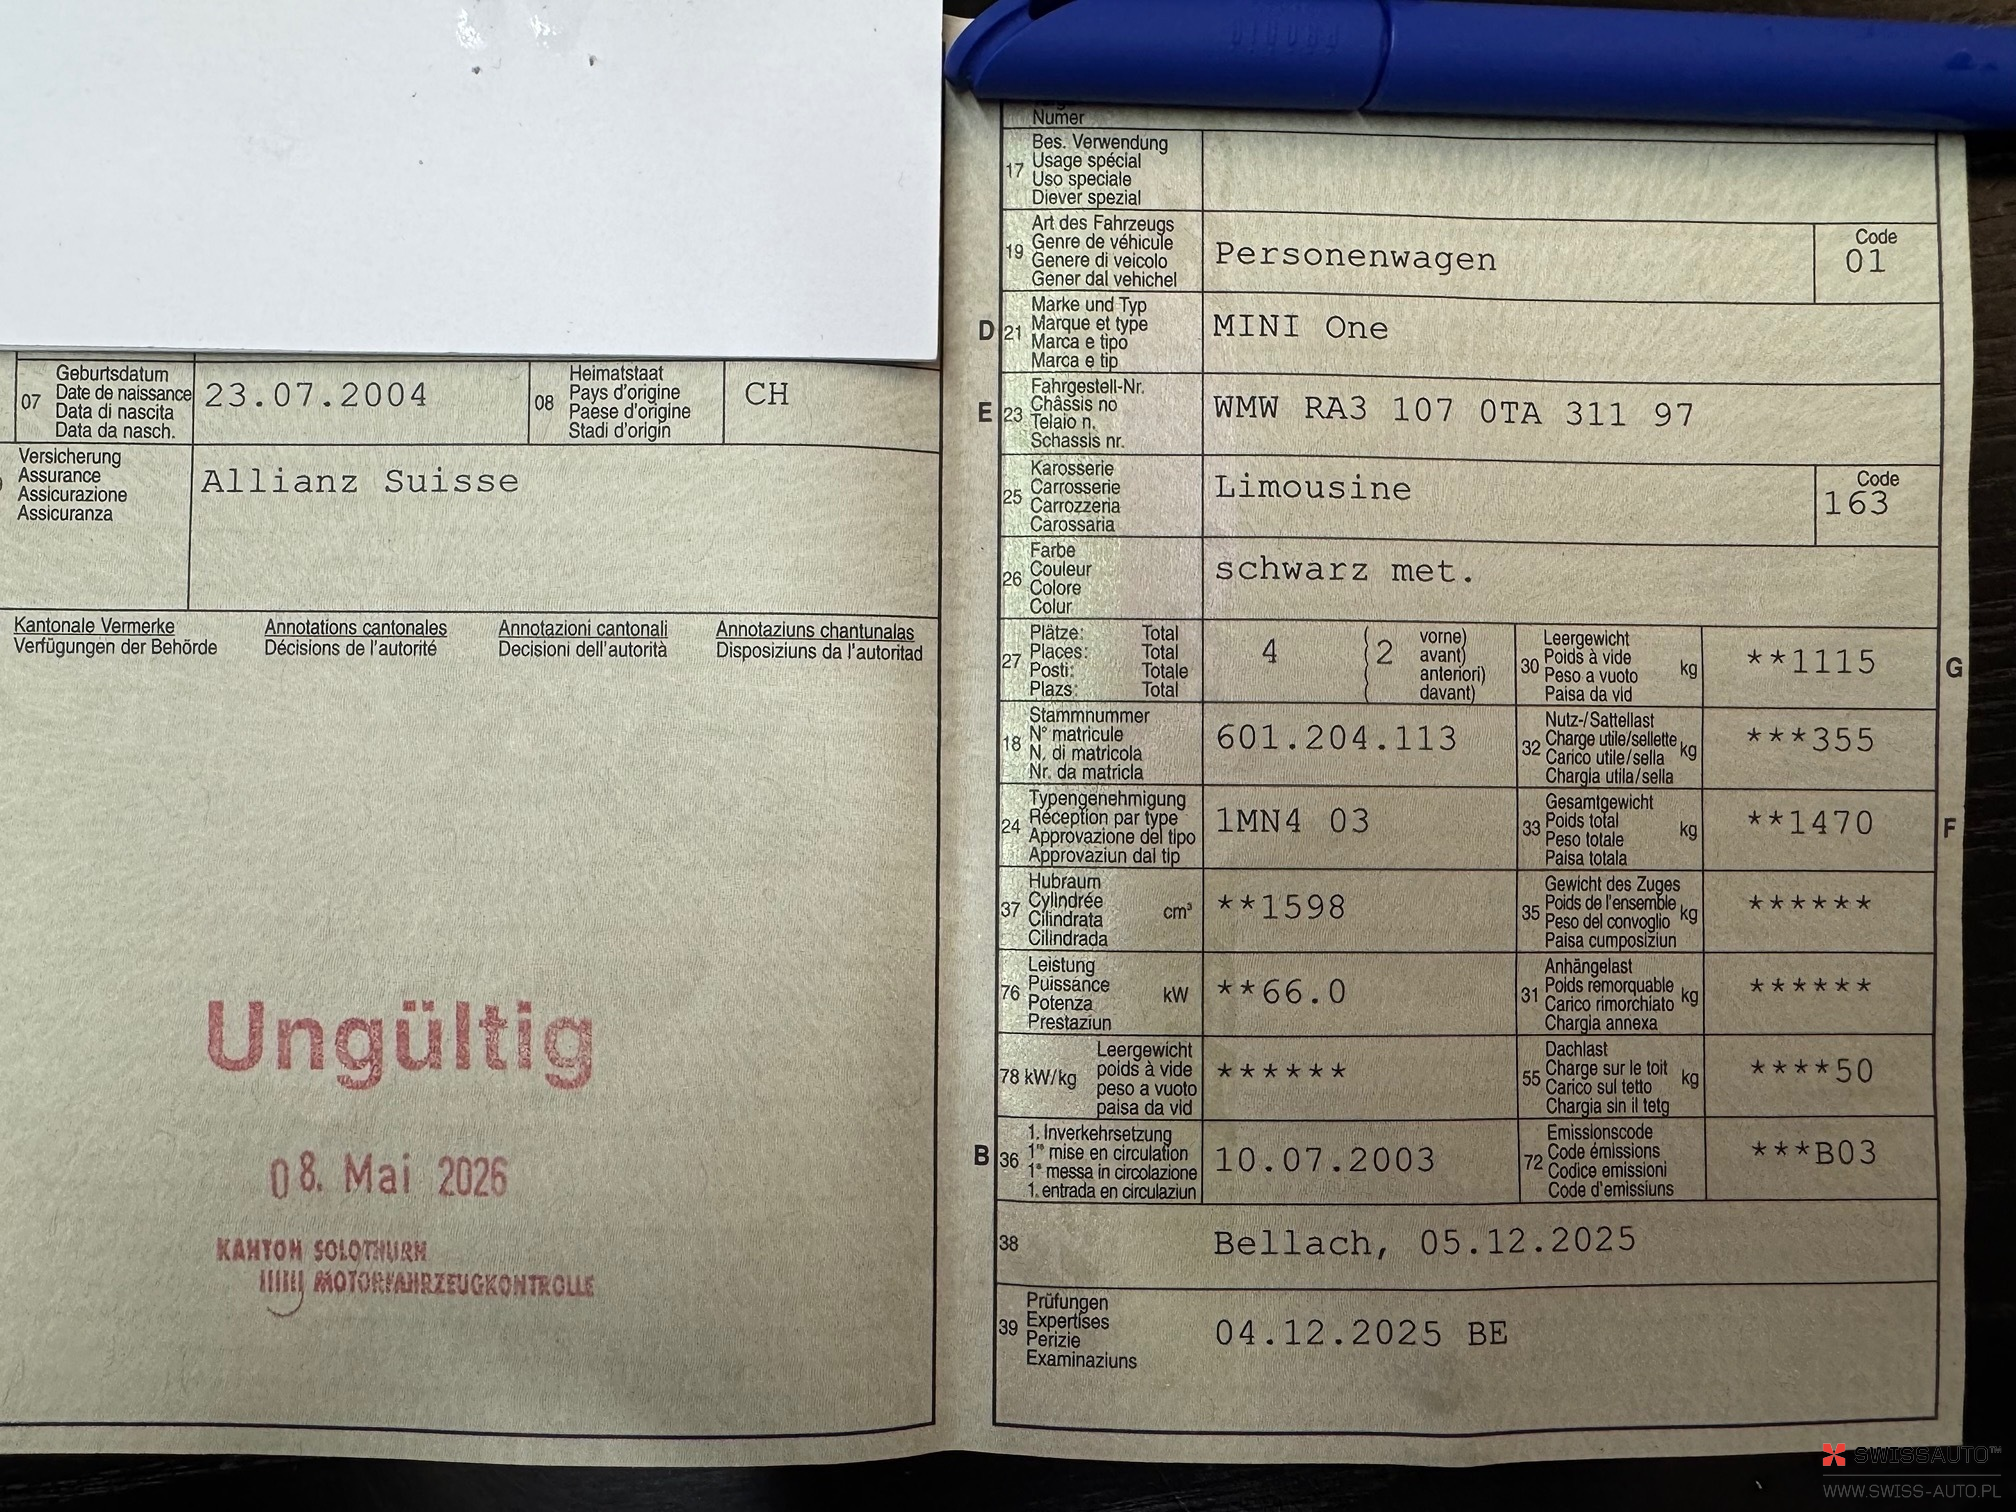 Numer
17 Bes. Verwendung
Usage spécial
Uso speciale
Diever spezial
19 Art des Fahrzeugs
Genre de véhicule
Genere di veicolo
Gener dal vehichel
Personenwagen
Code
01
D 21 Marke und Typ
Marque et type
Marca e tipo
Marca e tip
MINI One
07 Geburtsdatum
Date de naissance
Data di nascita
Data da nasch.
23.07.2004
08 Heimatstaat
Pays d'origine
Paese d'origine
Stadi d'origin
CH
E 23 Fahrgestell-Nr.
Châssis no
Telaio n.
Schassis nr.
WMW RA3 107 0TA 311 97
Versicherung
Assurance
Assicurazione
Assicuranza
Allianz Suisse
25 Karosserie
Carrosserie
Carrozzeria
Carossaria
Limousine
Code
163
26 Farbe
Couleur
Colore
Colur
schwarz met.
Kantonale Vermerke
Verfügungen der Behörde
Annotations cantonales
Décisions de l'autorité
Annotazioni cantonali
Decisioni dell'autorità
Annotaziuns chantunalas
Disposiziuns da l'autoritad
27 Plätze: Total
Places: Total
Posti: Totale
Plazs: Total
4 (2 vorne)
avant)
anteriori)
davant)
30 Leergewicht
Poids à vide
Peso a vuoto
Paisa da vid
kg
**1115
G
18 Stammnummer
N° matricule
N. di matricola
Nr. da matricla
601.204.113
32 Nutz-/Sattellast
Charge utile/sellette
Carico utile/sella
Chargia utila/sella
kg
***355
24 Typengenehmigung
Réception par type
Approvazione del tipo
Approvaziun dal tip
1MN4 03
33 Gesamtgewicht
Poids total
Peso totale
Paisa totala
kg
**1470
F
37 Hubraum
Cylindrée
Cilindrata
Cilindrada
cm³
**1598
35 Gewicht des Zuges
Poids de l'ensemble
Peso del convoglio
Paisa cumposiziun
kg
******
76 Leistung
Puissance
Potenza
Prestaziun
kW
**66.0
31 Anhängelast
Poids remorquable
Carico rimorchiato
Chargia annexa
kg
******
78 kW/kg
Leergewicht
poids à vide
peso a vuoto
paisa da vid
******
55 Dachlast
Charge sur le toit
Carico sul tetto
Chargia sin il tetg
kg
****50
B 36 1. Inverkehrsetzung
1re mise en circulation
1a messa in circolazione
1. entrada en circulaziun
10.07.2003
72 Emissionscode
Code émissions
Codice emissioni
Code d'emissiuns
***B03
38 Bellach, 05.12.2025
39 Prüfungen
Expertises
Perizie
Examinaziuns
04.12.2025 BE
Ungültig
08. Mai 2026
KANTON SOLOTHURN
MOTORFAHRZEUGKONTROLLE
SWISSAUTO™
WWW.SWISS-AUTO.PL